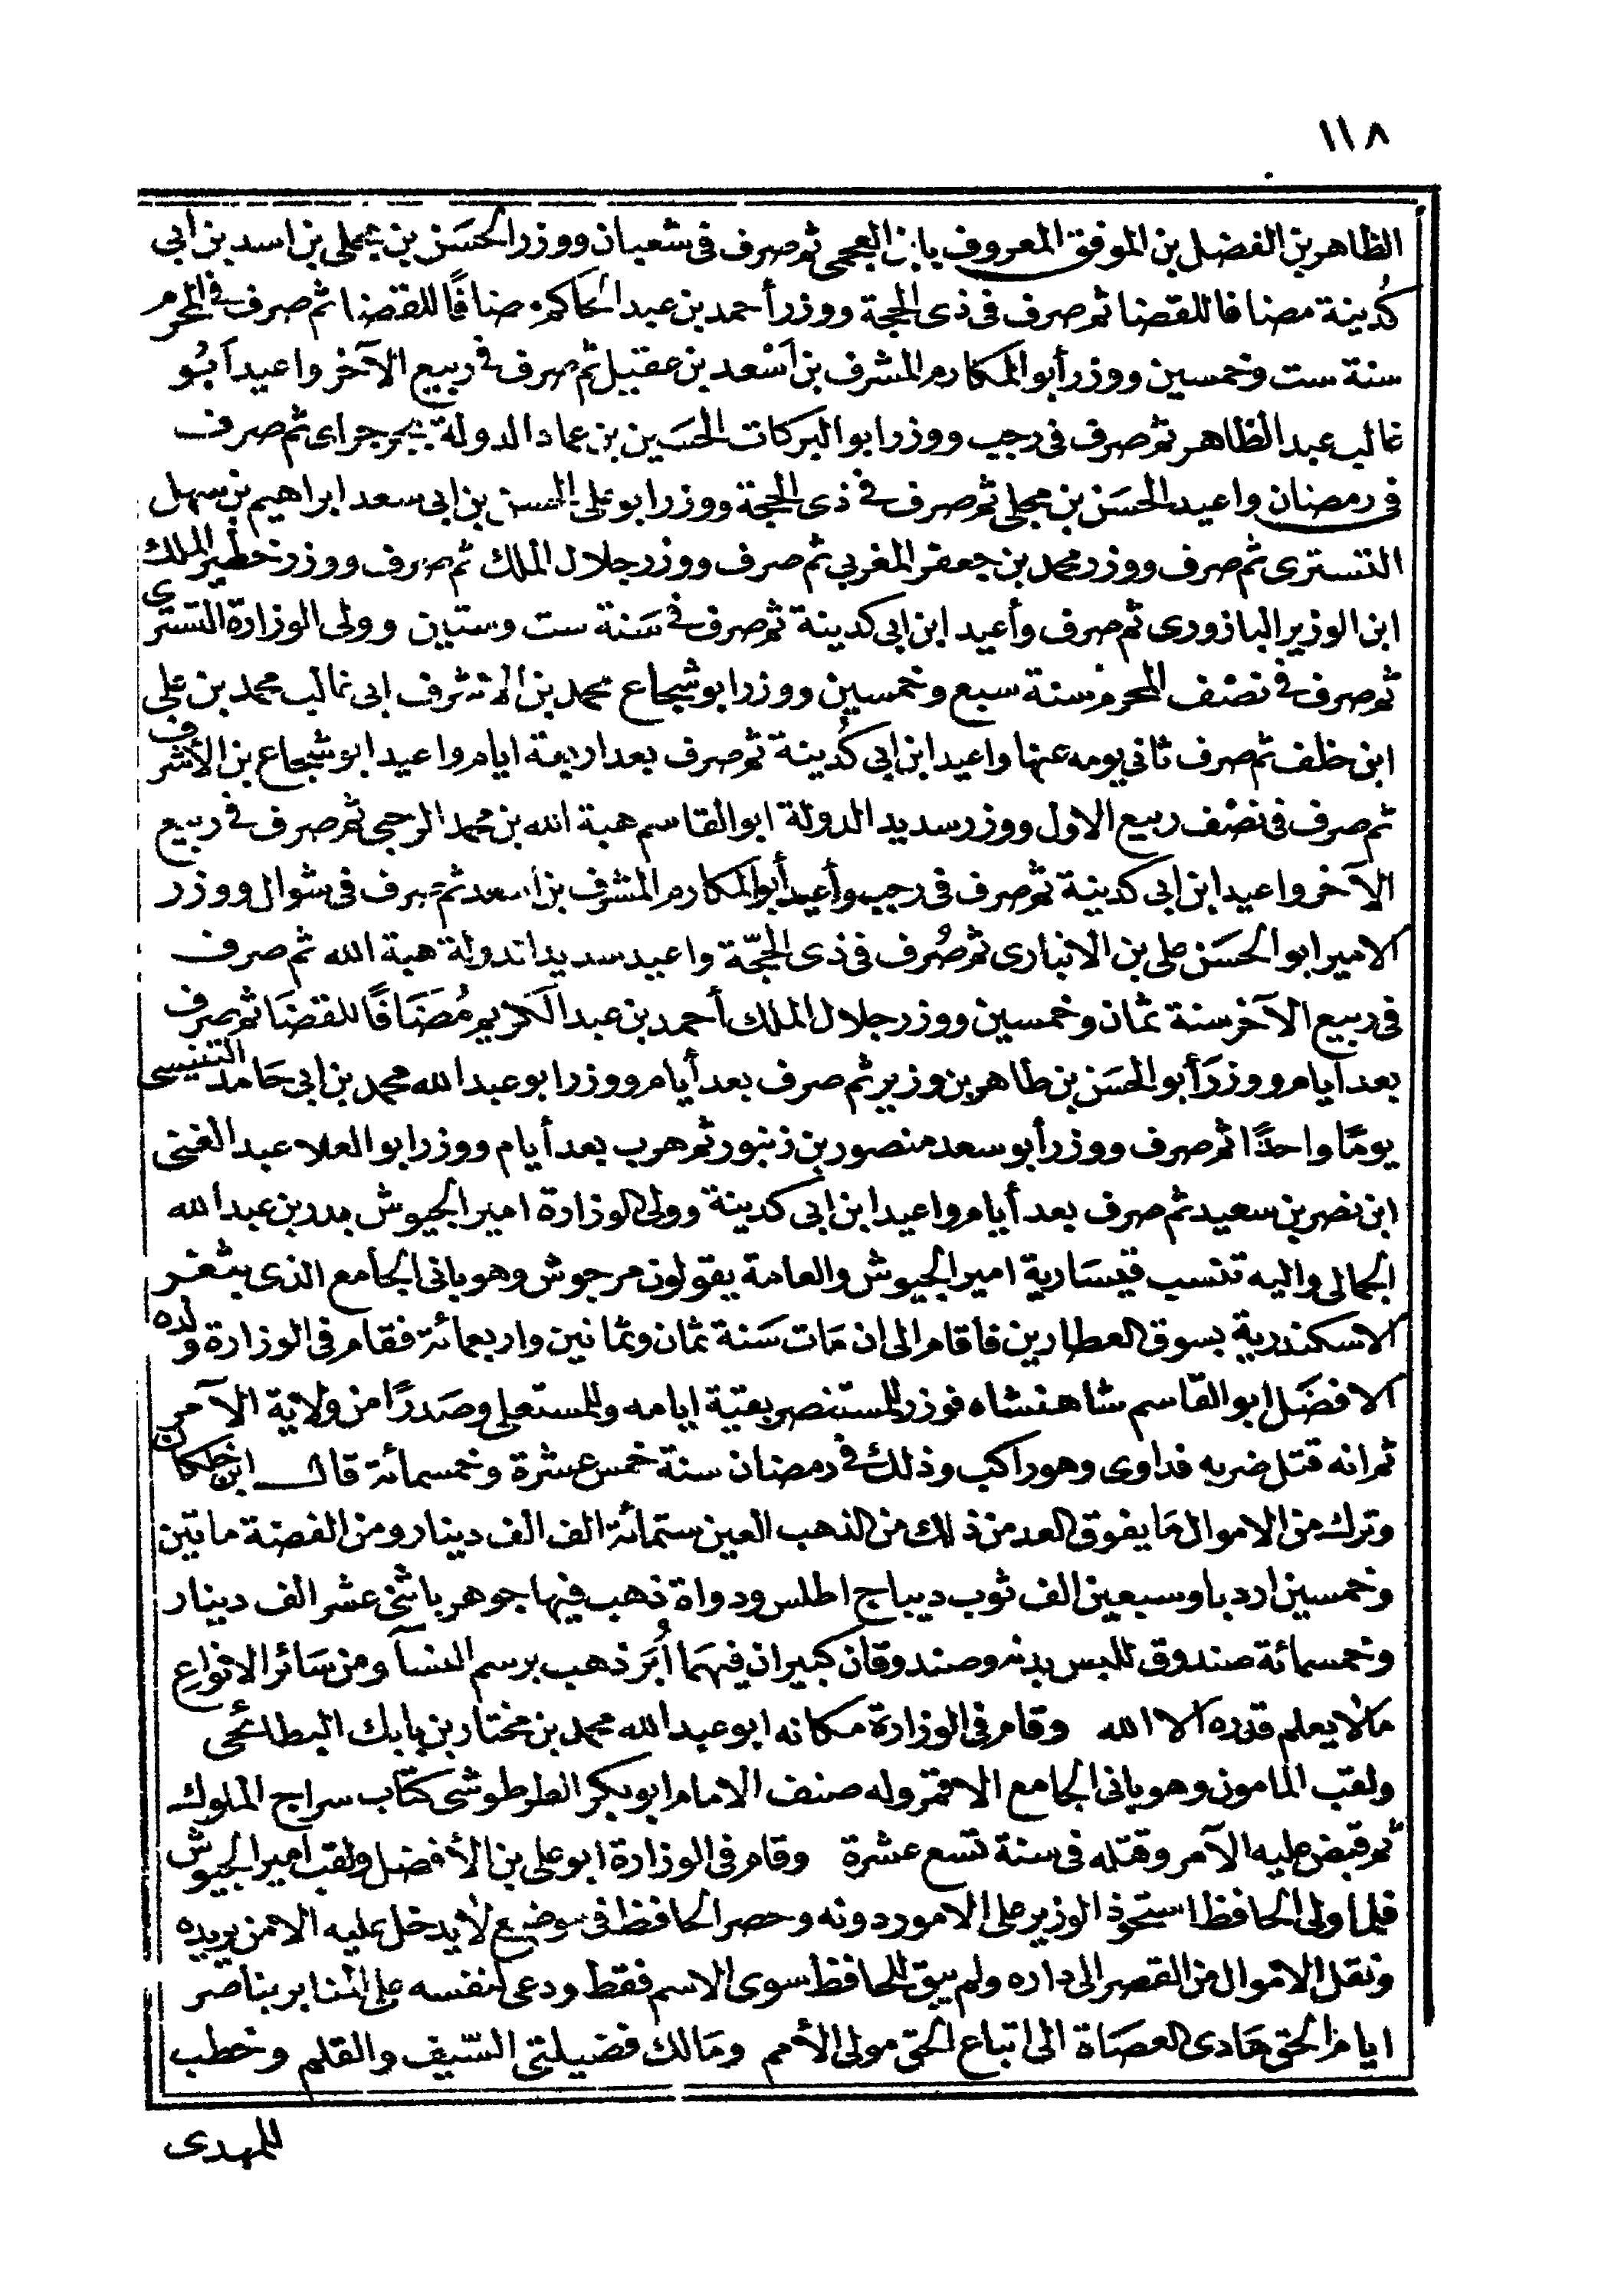 ١١٨
الظاهر بن الفضل بن الموفق المعروف بابن العجمى ثم صرف فى شعبان ووزر الحسَن بن مجلى بن اسد بن ابى
كُدينة مضافا للقضا ثم صرف فى ذى الحجة ووزر أحمد بن عبد الحاكم مضافًا للقضا ثم صرف فى المحرم
سنة ست وخمسين ووزر أبو المكارم المشرف بن اَسْعد بن عقيل ثم صرف فى ربيع الآخر واعيد اَبُو
غالب عبد الظاهر ثم صرف فى رجب ووزر ابو البركات الحسَين بن عماد الدولة الجرجراى ثم صرف
فى رمضان واعيد الحسَن بن مجلى ثم صرف فى ذى الحجة ووزر ابو على الحسن بن ابى سعد ابراهيم بن سهل
التسترى ثم صرف ووزر محمد بن جعفر المغربي ثم صرف ووزر جلال الملك ثم صرف ووزر خطير الملك
ابن الوزير اليازورى ثم صرف وأعيد ابن ابى كدينة ثم صرف فى سَنة ست وستين وولى الوزارة التسترى
ثم صرف فى نصْف المحرم سنة سبع وخمسين ووزر ابو شجاع محمد بن الاشرف ابى غالب محمد بن على
ابن خلف ثم صرف ثانى يومه عنها واعيد ابن ابى كُدينة ثم صرف بعد اربعة ايام واعيد ابو شجاع بن الأشرف
ثم صرف فى نصْف ربيع الاول ووزر سديد الدولة ابو القاسم هبة الله بن محمد الرحبى ثم صرف فى ربيع
الآخر واعيد ابن ابى كدينة ثم صرف فى رجب وأعيد أبو المكارم المشرف بن اسعد ثم صرف فى شوال ووزر
الامير ابو الحسَن على بن الانبارى ثم صُرف فى ذى الحجّة واعيد سديد الدولة هبة الله ثم صرف
فى ربيع الآخر سنة ثمان وخمسين ووزر جلال الملك أحمد بن عبد الكريم مُضَافًا للقضَا ثم صرف
بعد أيام ووزرَ أبو الحسَن بن طاهر بن وزير ثم صرف بعد أيام ووزر ابو عبد الله محمد بن ابى حَامد التنيسى
يومًا واحدًا ثم صرف ووزر أبو سعد منصور بن زنبور ثم هرب بعد أيام ووزر ابو العلا عبد الغنى
ابن نصر بن سعيد ثم صرف بعد أيام واعيد ابن ابى كدينة وولى الوزارة امير الجيوش بدر بن عبد الله
الجمالى واليه تنسب قيسَارية امير الجيوش والعامة يقولون مرجوش وهو بانى الجامع الذى بثغر
الاسكندرية بسوق العطارين فأقام الى ان مَات سَنة ثمان وثمانين واربعمائة فقام فى الوزارة ولده
الافضَل ابو القَاسم شاهنشاه فوزر للمستنصر بقية ايامه وللمستعلى وصَدرًا من ولاية الآمر
ثم انه قتل ضربه فداوى وهو راكب وذلك فى رمضان سنة خمس عشرة وخمسمائة قال ابن خلكان
وترك من الاموال مَا يفوق العد من ذلك من الذهب العين ستمائة الف الف دينار ومن الفضة مايتين
وخمسين اردبا وسبعين الف ثوب ديباج اطلس ودواة ذهب فيها جوهر باثنى عشر الف دينار
وخمسمائة صندوق للبس بدنه وصندوقان كبيران فيهمَا اُبَر ذهب برسم النسآ ومن سَائر الانواع
مَالا يعلم قدره الا الله وقام فى الوزارة مكانه ابو عبد الله محمد بن مختار بن بابك البطائحى
ولقب المامون وهو بانى الجامع الاقمر وله صنف الامام ابو بكر الطرطوشى كتاب سراج الملوك
ثم قبض عليه الآمر وقتله فى سنة تسع عشرة وقام فى الوزارة ابو على بن الأفضل ولقب امير الجيوش
فلما ولى الحافظ استحوذ الوزير على الامور دونه وحصر الحافظ فى موضع لا يدخل عليه الا من يريده
ونقل الاموال من القصر الى داره ولم يبق للحافظ سوى الاسم فقط ودعى لنفسه على المنابر بناصر
ايام الحق هَادى العصَاة الى اتباع الحق مولى الأمم ومَالك فضيلتى السّيف والقلم وخطب
للمهدى